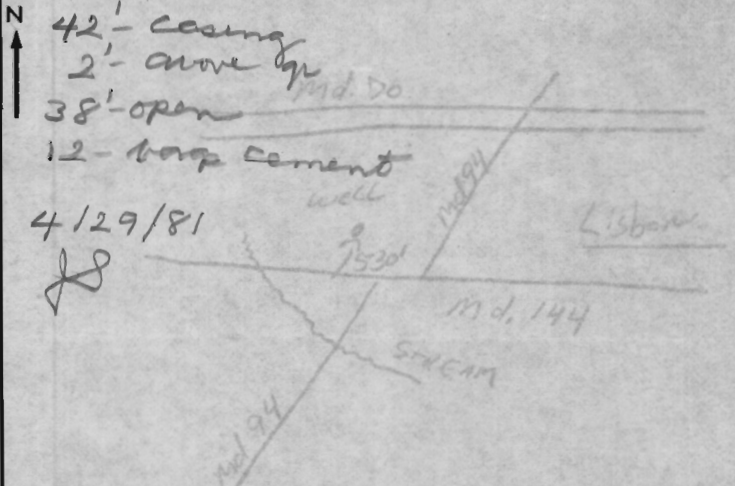 N
42'- casing
2'- above gr
38'-open
12- bags cement
4/29/81
JS
Md. 70
Md 94
well
530'
Lisbon
Md. 144
STREAM
Md 94